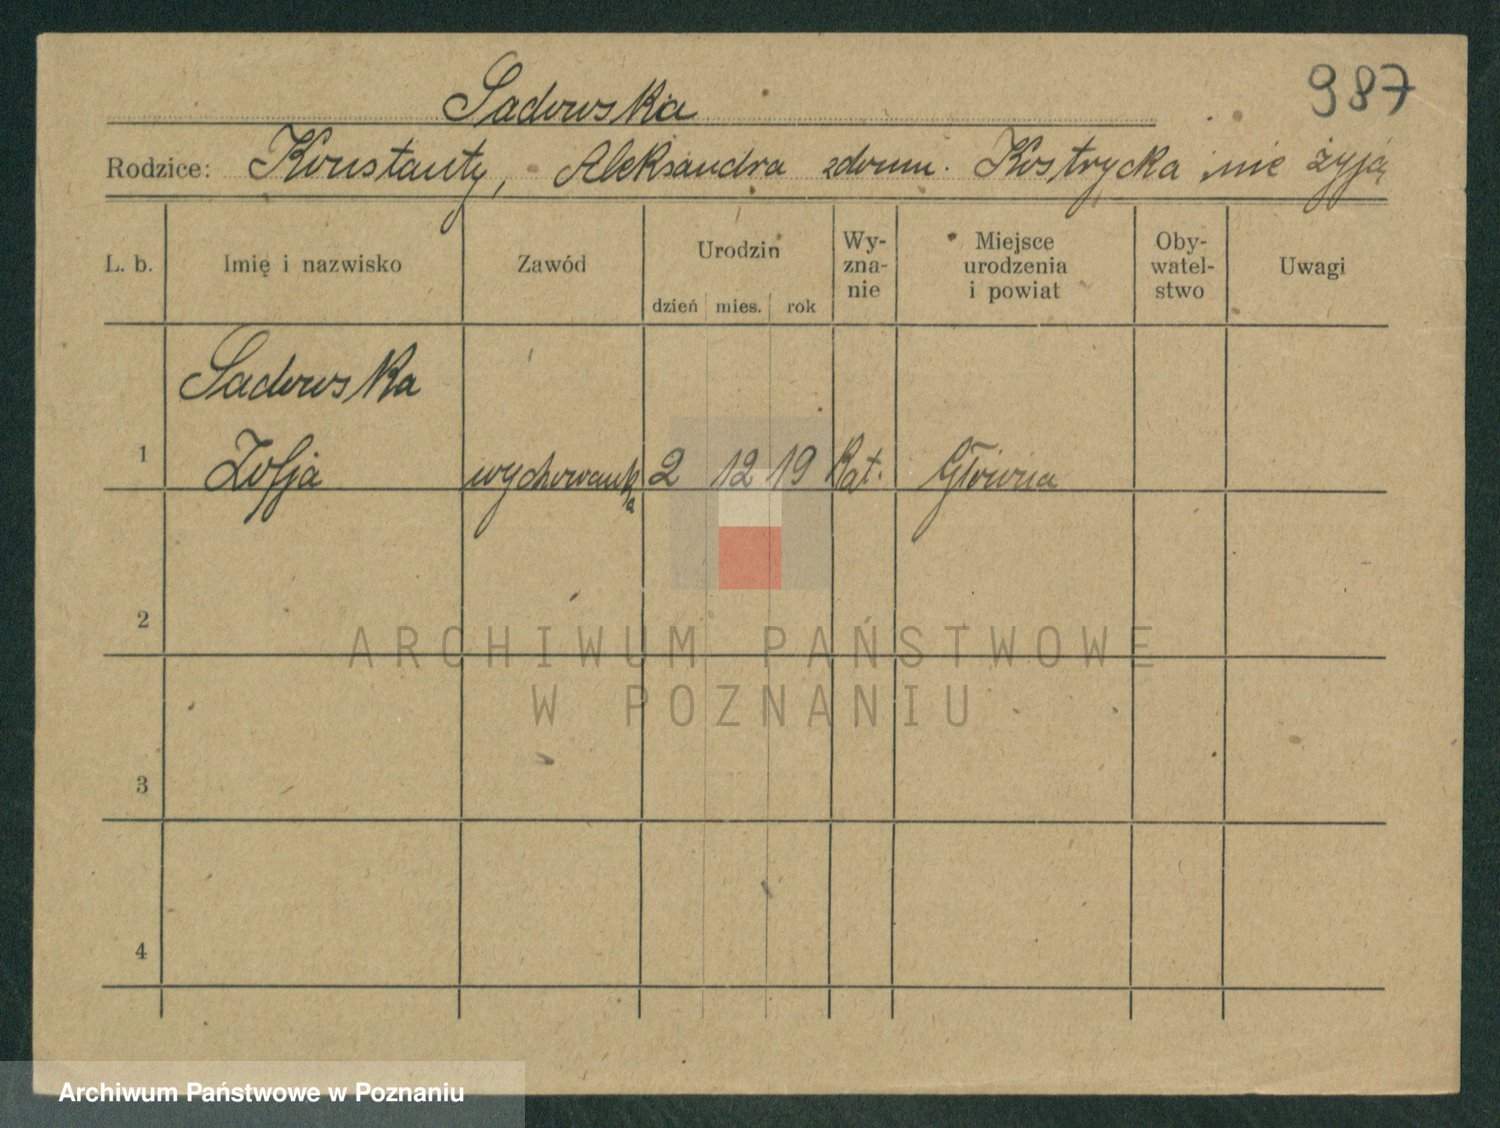 987
Sadowska
Rodzice: Konstanty, Aleksandra zdomu. Kostrycka nie żyją
L. b. Imię i nazwisko Zawód Urodzin Wy- Miejsce Oby- Uwagi
zna- urodzenia watel-
nie i powiat stwo
dzień mies. rok
Sadowska
1 Zofja wychowanka 2 12 19 Kat. Główna
2
ARCHIWUM PAŃSTWOWE
W POZNANIU
3
4
Archiwum Państwowe w Poznaniu